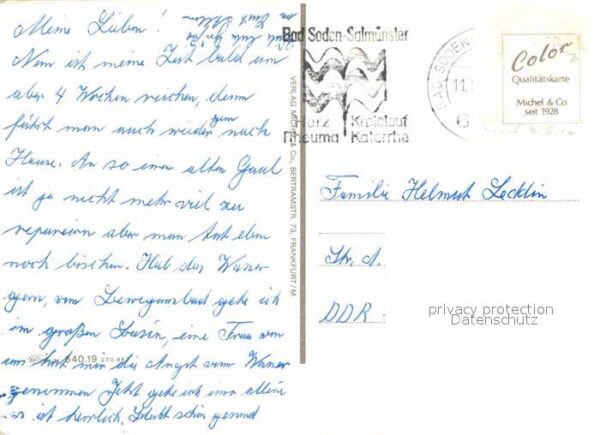 Meine Lieben!
Nun ist meine Zeit bald um
aber 4 Wochen reichen, denn
fährt man auch wieder gern nach
Hause. An so einen alten Gaul
ist ja nicht mehr viel zu
reparieren aber man tut eben
noch bischen. Hab das Wasser
gern, vom Bewegungsbad gehe ich
im großen Bassin, eine Frau von
uns hat mir die Angst vorm Wasser
genommen Jetzt gehe ich immer alleine
es ist herrlich. Bleibt schön gesund
Bad Soden-Salmünster
Herz Kreislauf
Rheuma Katarrhe
BAD SODEN
11.
6
Color
Qualitätskarte
Michel & Co
seit 1928
VERLAG MICHEL & Co., BERTRAMSTR. 73, FRANKFURT/M.
Familie Helmut Lecklin
Str. d.
DDR-
privacy protection
Datenschutz
640.19